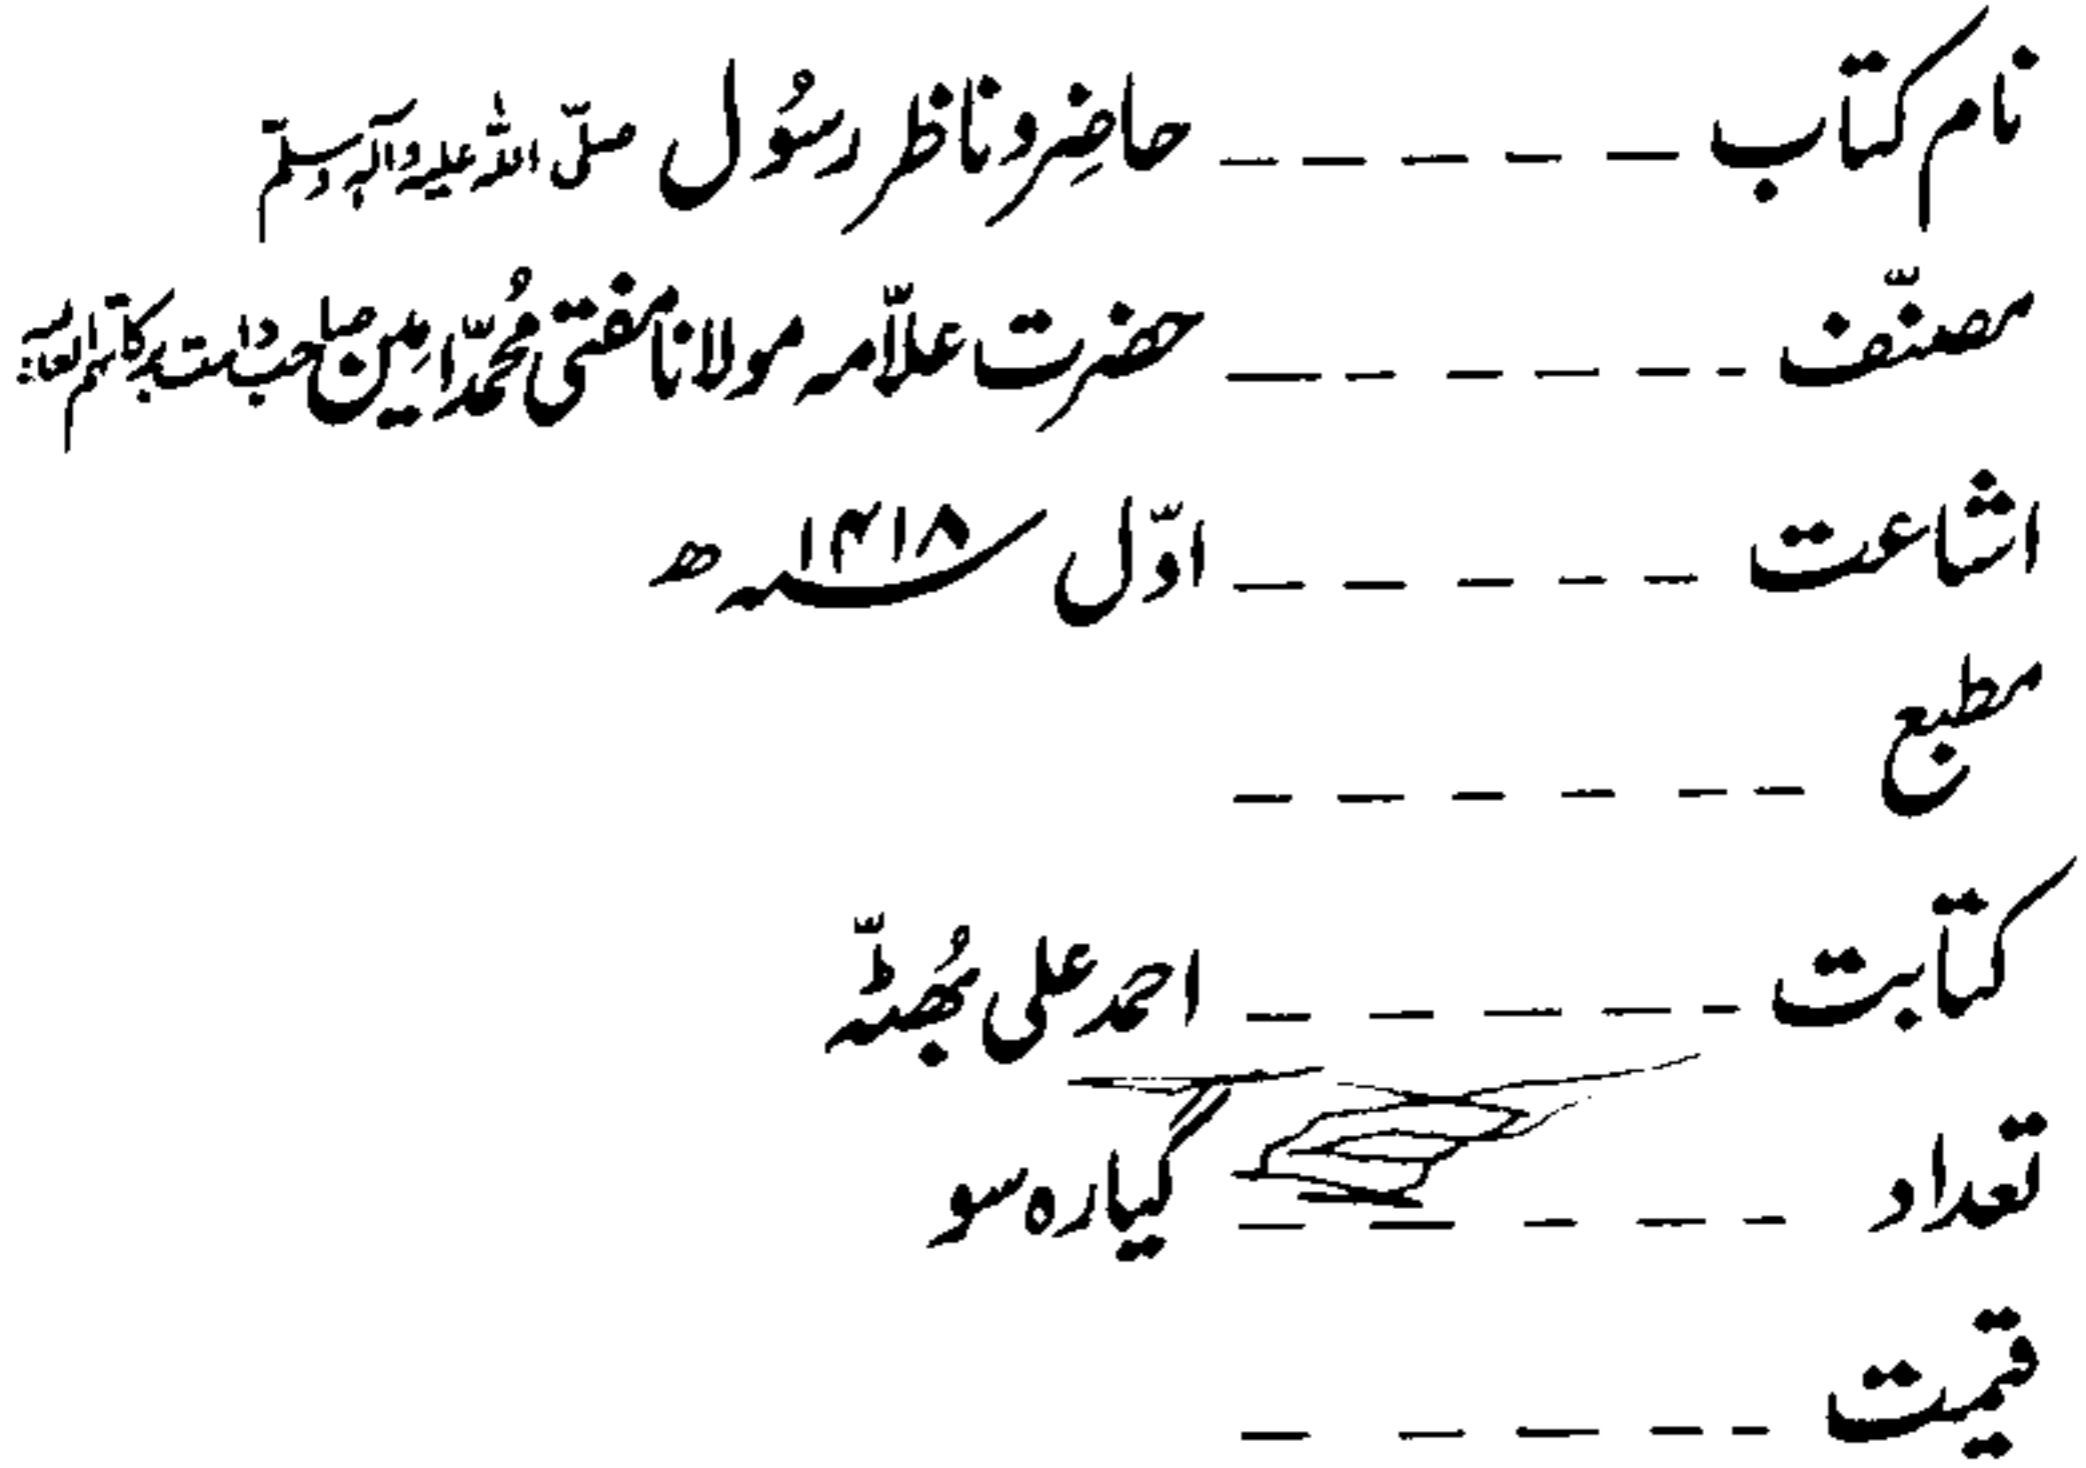 نام کتاب ـ ـ ـ ـ ـ حاضِر و ناظر رسُول صلّی اللہ علیہ وآلہٖ وسلّم
مصنّف ـ ـ ـ ـ ـ ـ حضرت علاّمہ مولانا مفتی مُحمّد امِین صاحب دامت برکاتہم العالیہ
اشاعت ـ ـ ـ ـ ـ اوّل ۱۴۱۸؁ ھ
مطبع ـ ـ ـ ـ ـ ـ
کتابت ـ ـ ـ ـ ـ احمد علی بُھٹّہ
تعداد ـ ـ ـ ـ ـ گیارہ سو
قیمت ـ ـ ـ ـ ـ